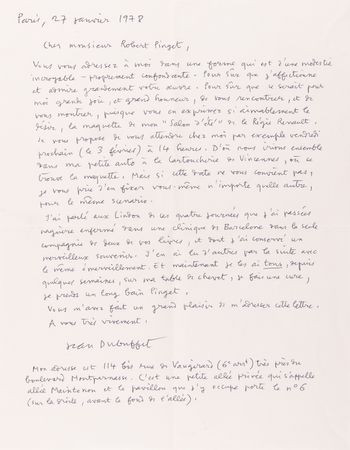 Paris, 27 janvier 1978
Cher monsieur Robert Pinget,
Vous vous adressez à moi dans une forme qui est d'une modestie
incroyable – proprement confondante. Pour sûr que j'affectionne
et admire grandement votre œuvre. Pour sûr que ce serait pour
moi grande joie, et grand honneur, de vous rencontrer, et de
vous montrer, puisque vous en exprimez si aimablement le
désir, la maquette de mon "Salon d'été" de la Régie Renault.
Je vous propose de vous attendre chez moi par exemple vendredi
prochain (le 3 février) à 14 heures. D'où nous irions ensemble
dans ma petite auto à la Cartoucherie de Vincennes, où se
trouve la maquette. Mais si cette date ne vous convient pas,
je vous prie d'en fixer vous-même n'importe quelle autre,
pour le même scénario.
J'ai parlé aux Lindon de ces quatre journées que j'ai passées
naguère enfermé dans une clinique de Barcelone dans la seule
compagnie de deux de vos livres, et dont j'ai conservé un
merveilleux souvenir. J'en ai lu d'autres par la suite avec
le même émerveillement. Et maintenant je les ai tous, depuis
quelques semaines, sur ma table de chevet, je fais une cure,
je prends un long bain Pinget.
Vous m'avez fait un grand plaisir de m'adresser cette lettre.
A vous très vivement.
Jean Dubuffet
Mon adresse est 114 bis rue de Vaugirard (6e arrt) très près du
boulevard Montparnasse. C'est une petite allée privée qui s'appelle
allée Maintenon et le pavillon que j'y occupe porte le n° 6
(sur la droite, avant le fond de l'allée).